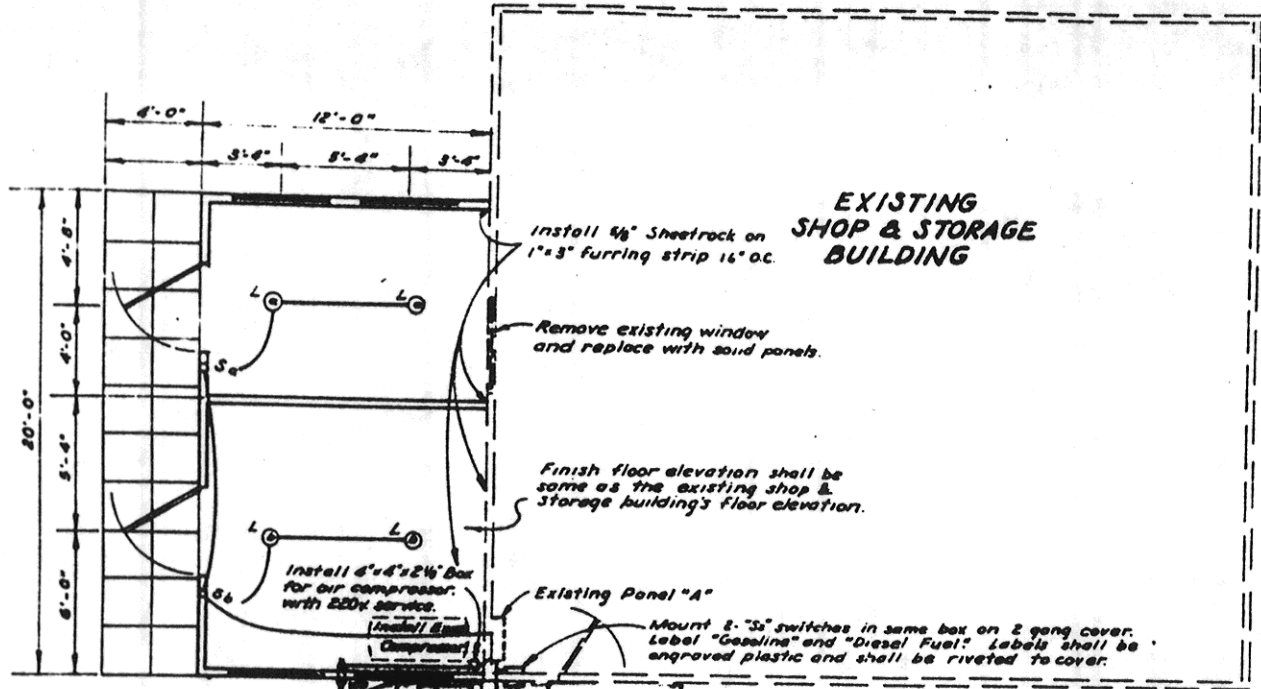 4'-0"
12'-0"
3'-4"
5'-4"
3'-4"
20'-0"
4'-8"
4'-0"
5'-4"
6'-0"
EXISTING
SHOP & STORAGE
BUILDING
Install 5/8" Sheetrock on
1"x3" furring strip 16" O.C.
Remove existing window
and replace with solid panels.
L a
L a
Sa
Finish floor elevation shall be
same as the existing shop &
storage building's floor elevation.
L b
L b
Sb
Install 4"x4"x2⅛" Box
for air compressor.
with 220v service.
Install
Compressor
Existing Panel "A"
Mount 2-"S2" switches in same box on 2 gang cover.
Label "Gasoline" and "Diesel Fuel." Labels shall be
engraved plastic and shall be riveted to cover.